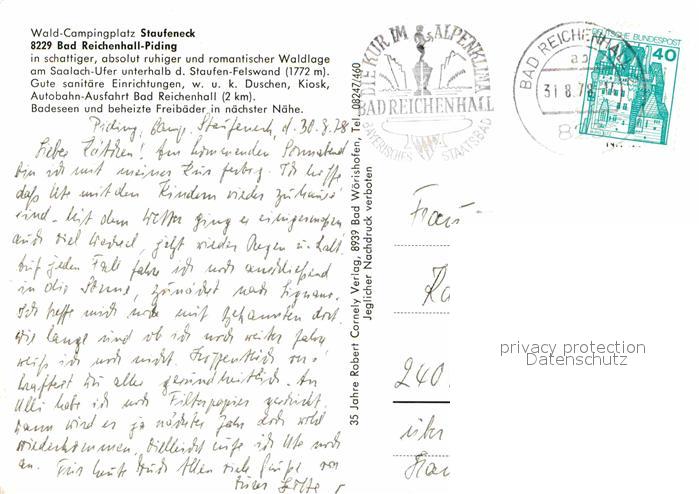 Wald-Campingplatz Staufeneck
8229 Bad Reichenhall-Piding
in schattiger, absolut ruhiger und romantischer Waldlage
am Saalach-Ufer unterhalb d. Staufen-Felswand (1772 m).
Gute sanitäre Einrichtungen, w. u. k. Duschen, Kiosk,
Autobahn-Ausfahrt Bad Reichenhall (2 km).
Badeseen und beheizte Freibäder in nächster Nähe.
Piding, Camp. Staufeneck, d. 30.8.78
Am kommenden Sonnabend
bin ich mit meiner Kur fertig. Ich hoffe
daß Ute mit den Kindern wieder zuhause
sind. Mit dem Wetter ging es einigermaßen
auch viel Wechsel, jetzt wieder Regen u. kalt.
Auf jeden Fall fahre ich noch anschließend
in die Sonne, zunächst nach
Ich treffe mich noch mit Bekannten dort.
Wie lange und ob ich noch weiter fahre
weiß ich noch nicht. Hoffentlich
Ihr alle gesundheitlich. An
Ulli habe ich noch Filterpapier geschickt.
Dann wird er ja nächstes Jahr doch wohl
wiederkommen. Vielleicht rufe ich Ute noch
an. Für heute Euch Allen viele Grüße von
Eurer
35 Jahre Robert Cornely Verlag, 8939 Bad Wörishofen, Tel. 08247/460
Jeglicher Nachdruck verboten
DIE KUR IM ALPENKLIMA
BAD REICHENHALL
BAYERISCHES STAATSBAD
BAD REICHENHALL
31.8.78
DEUTSCHE BUNDESPOST
40
Frau
240
über
privacy protection
Datenschutz